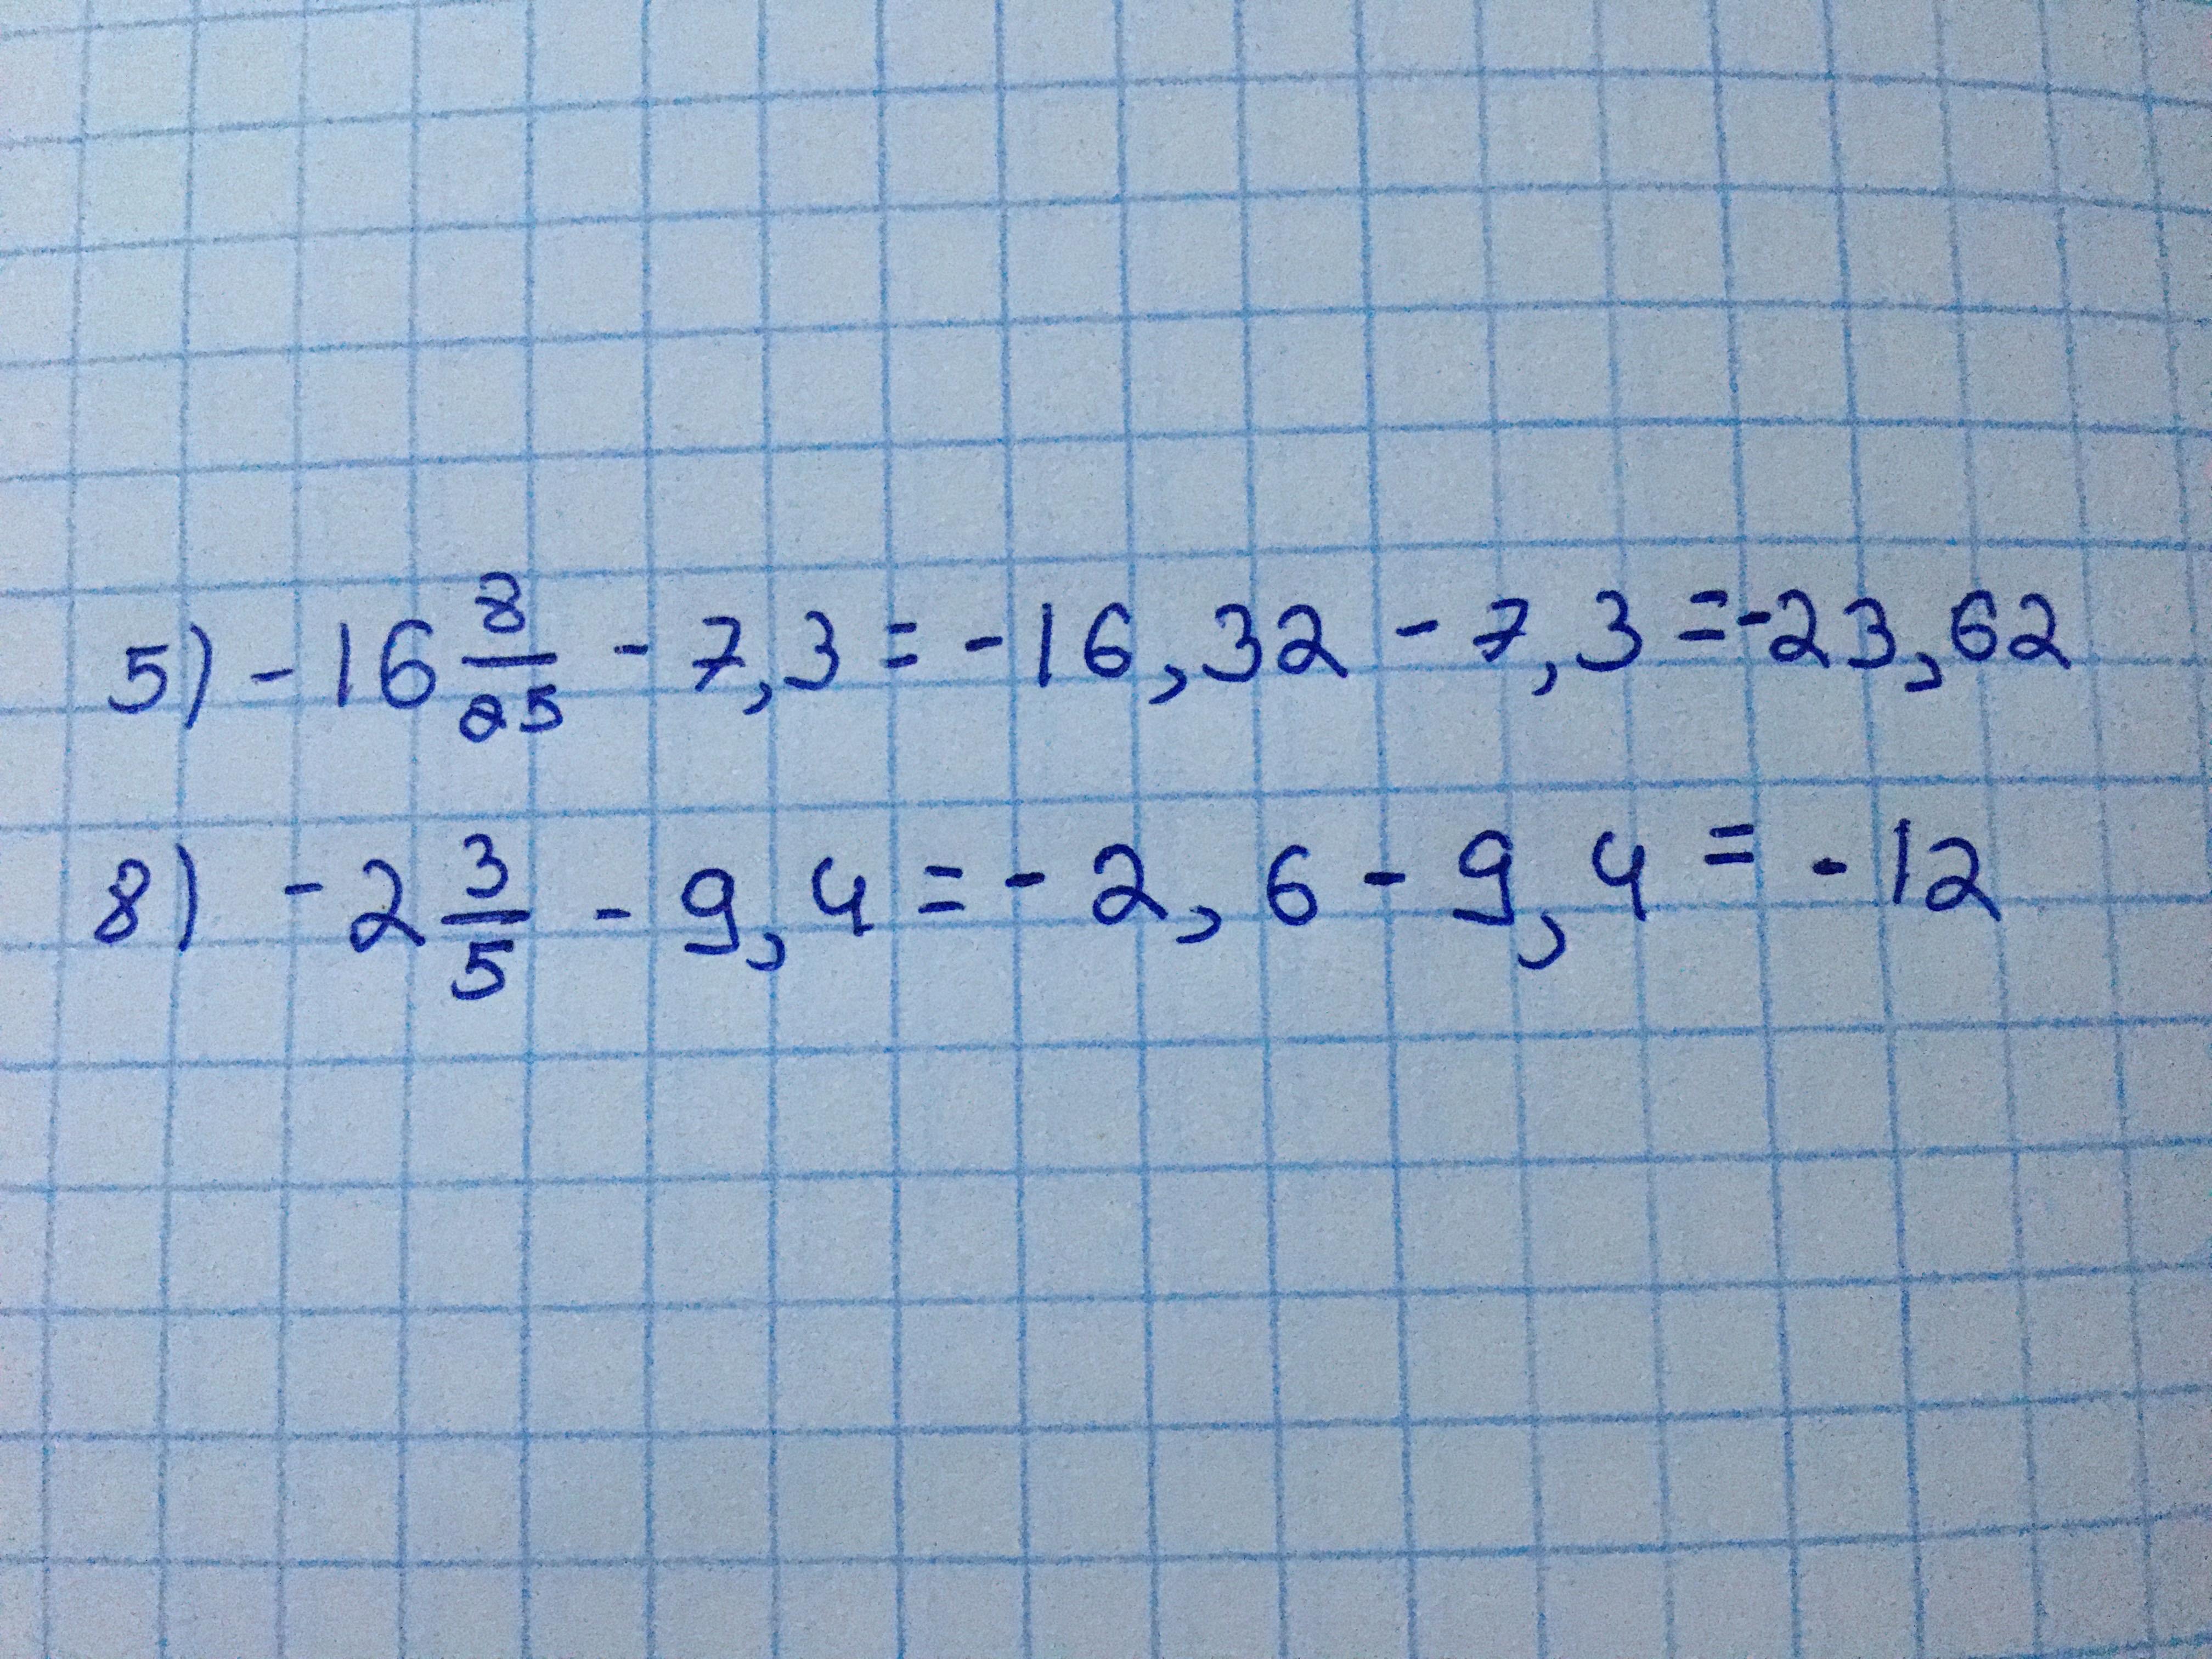 5) -16 8/25 - 7,3 = -16,32 - 7,3 = -23,62
8) -2 3/5 - 9,4 = -2,6 - 9,4 = -12